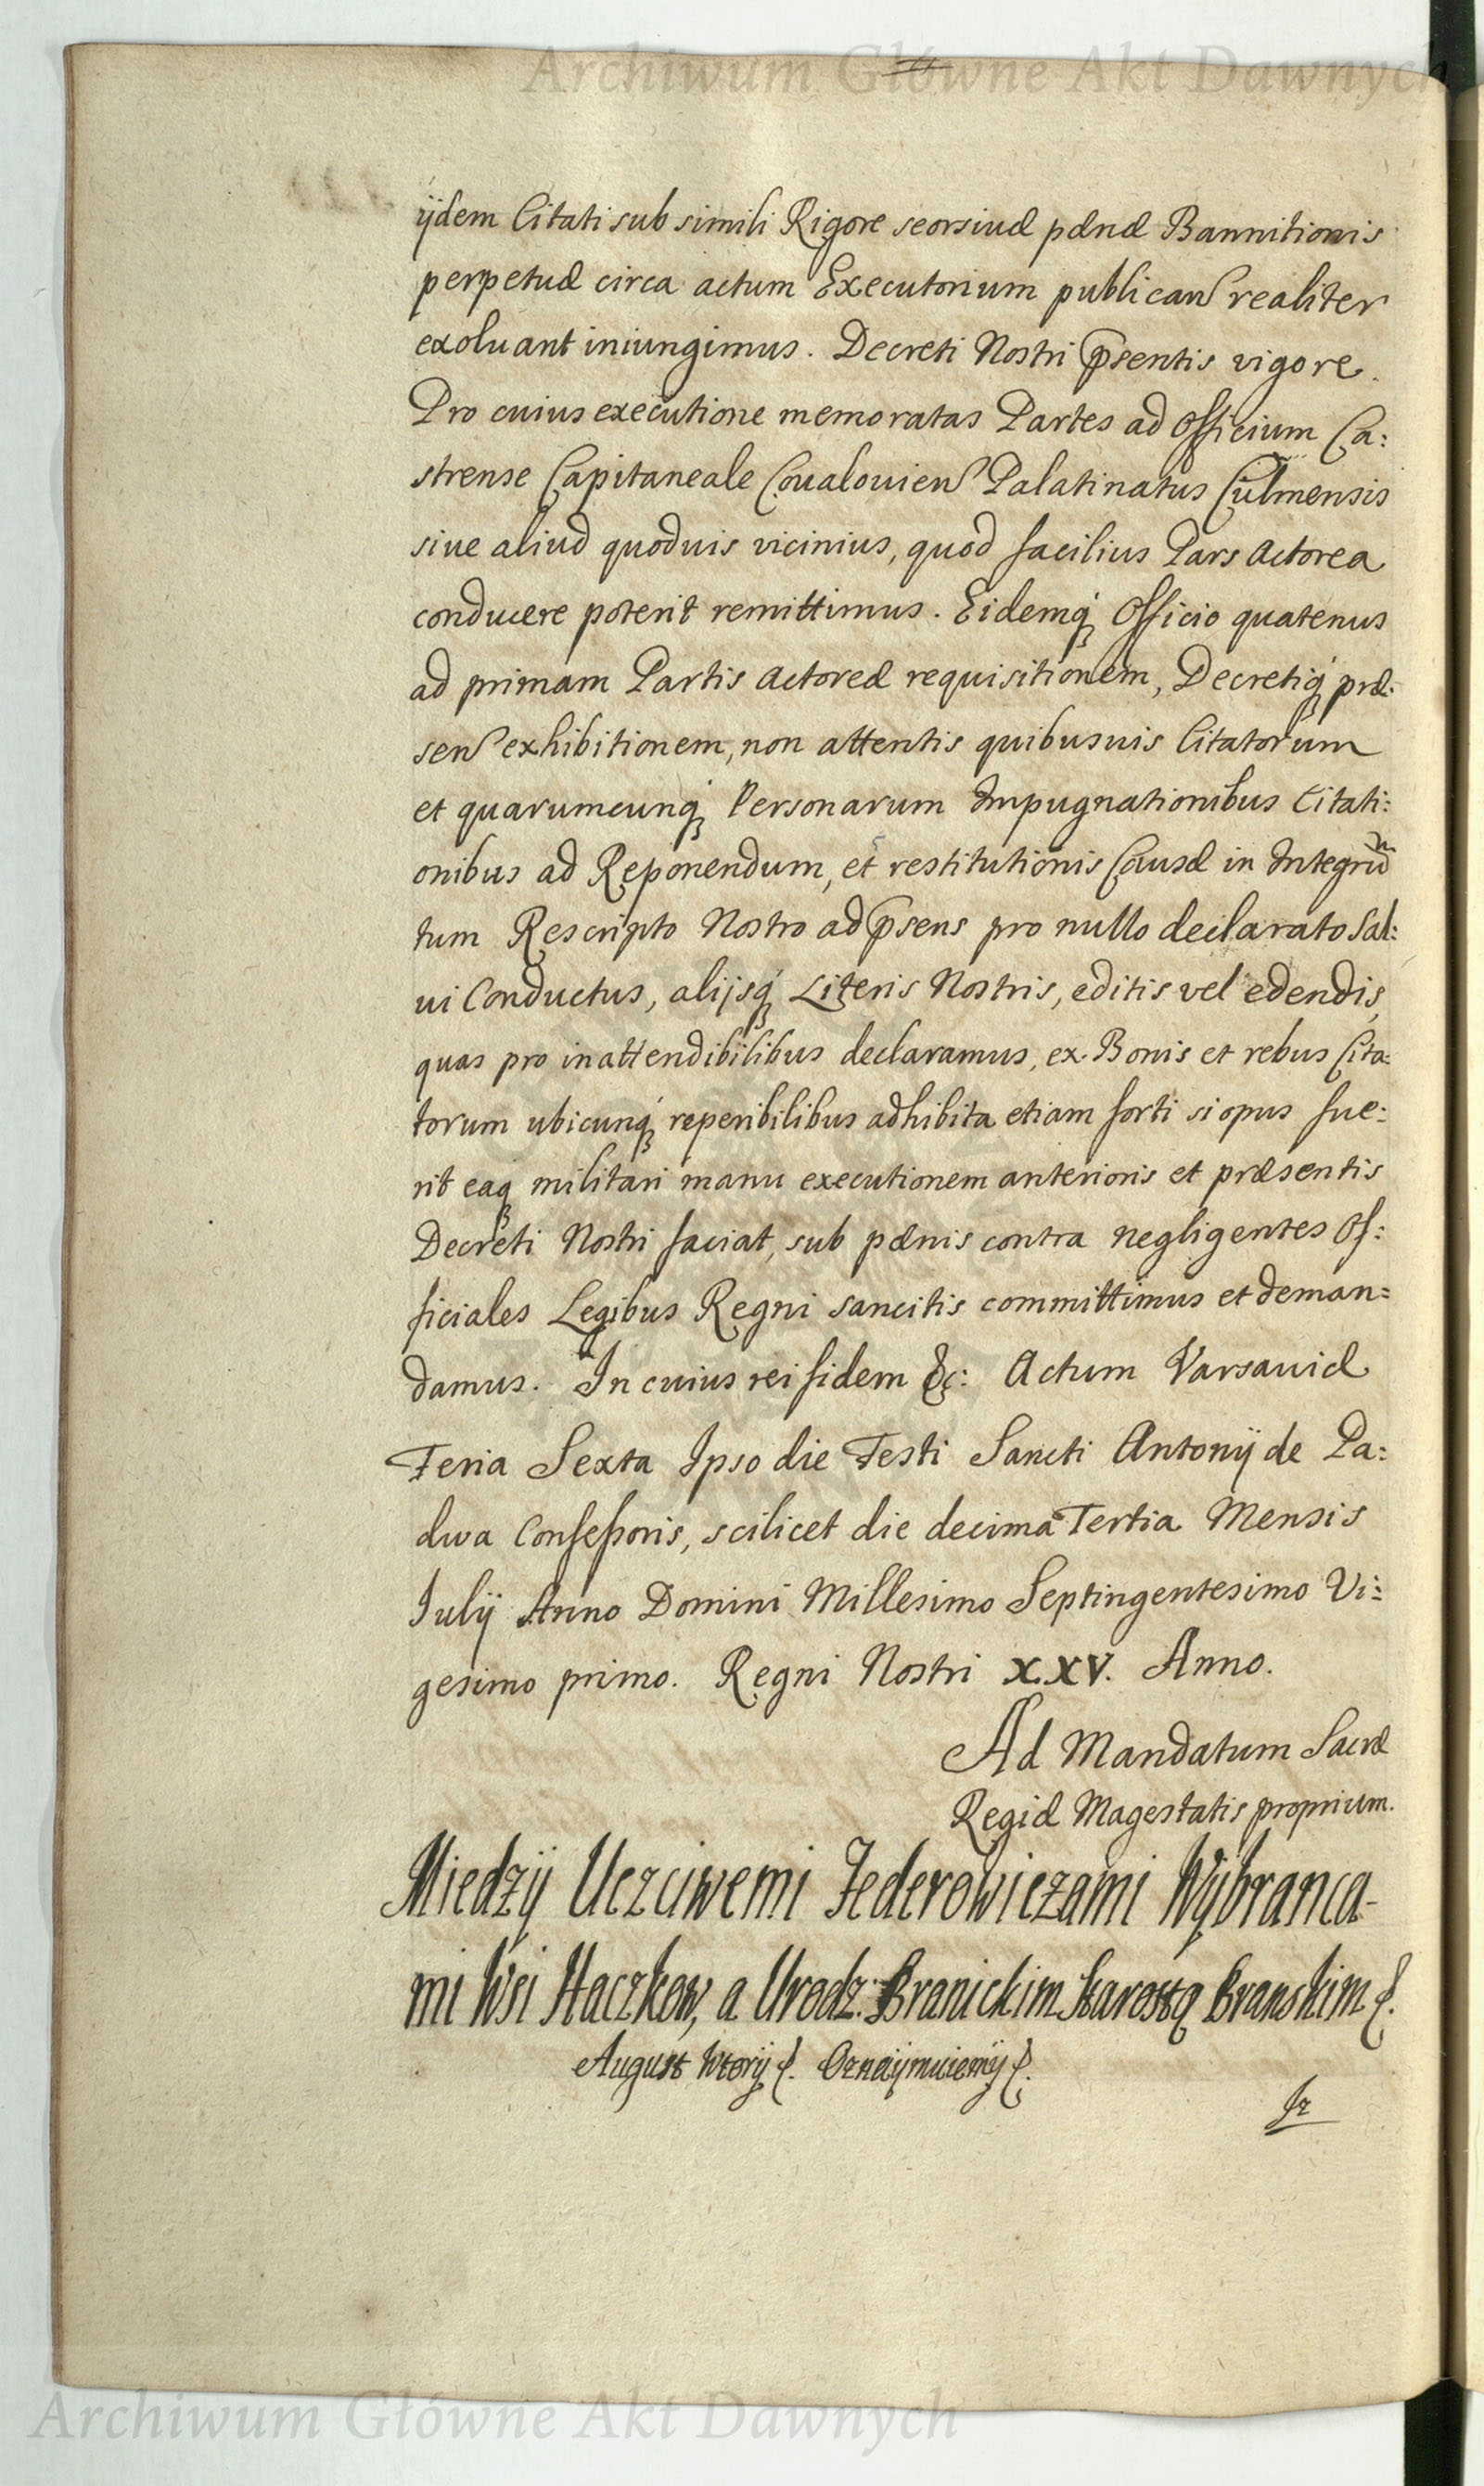 Archiwum Główne Akt Dawnych
ijdem Citati sub simili Rigore seorsiuæ pænæ Bannitionis
perpetuæ circa actum Executorium publican realiter
exoluant iniungimus. Decreti Nostri psentis vigore.
Pro cuius executione memoratas Partes ad Officium Ca:
strense Capitaneale Coualouien Palatinatus Culmensis
siue aliud quoduis vicinius, quod facilius Pars Actorea
conducere poterit remittimus. Eidemq Officio quatenus
ad primam Partis Actoreæ requisitionem, Decretiq præ:
sen exhibitionem, non attentis quibusuis Citatorum
et quarumcunq Personarum Impugnationibus Citati:
onibus ad Reponendum, et restitutionis Causæ in Integrũ
tum Rescripto Nostro ad psens pro nullo declarato Sal:
ui Conductus, alijsq Literis Nostris, editis vel edendis,
quas pro inattendibilibus declaramus, ex Bonis et rebus Cita:
torum ubicunq reperibilibus adhibita etiam forti si opus fue:
rit eaq militari manu executionem anterioris et præsentis
Decreti Nostri faciat, sub pænis contra negligentes Of:
ficiales Legibus Regni sancitis committimus et deman:
damus. In cuius rei fidem &c: Actum Varsauiæ
Feria Sexta Ipso die Festi Sancti Antonij de Pa:
dua Confessoris, scilicet die decima Tertia Mensis
Iulij Anno Domini Millesimo Septingentesimo Vi:
gesimo primo. Regni Nostri XXV. Anno.
Ad Mandatum Sacræ
Regiæ Magestatis proprium.
Miedzÿ Uczciwemi Federowiczami Wÿbranca-
mi Wsi Haczkow, a Urodz: Branickim Starostą Branskim &.
August Wtorÿ &. Oznaÿmuiemÿ &.
Iz
Archiwum Główne Akt Dawnych